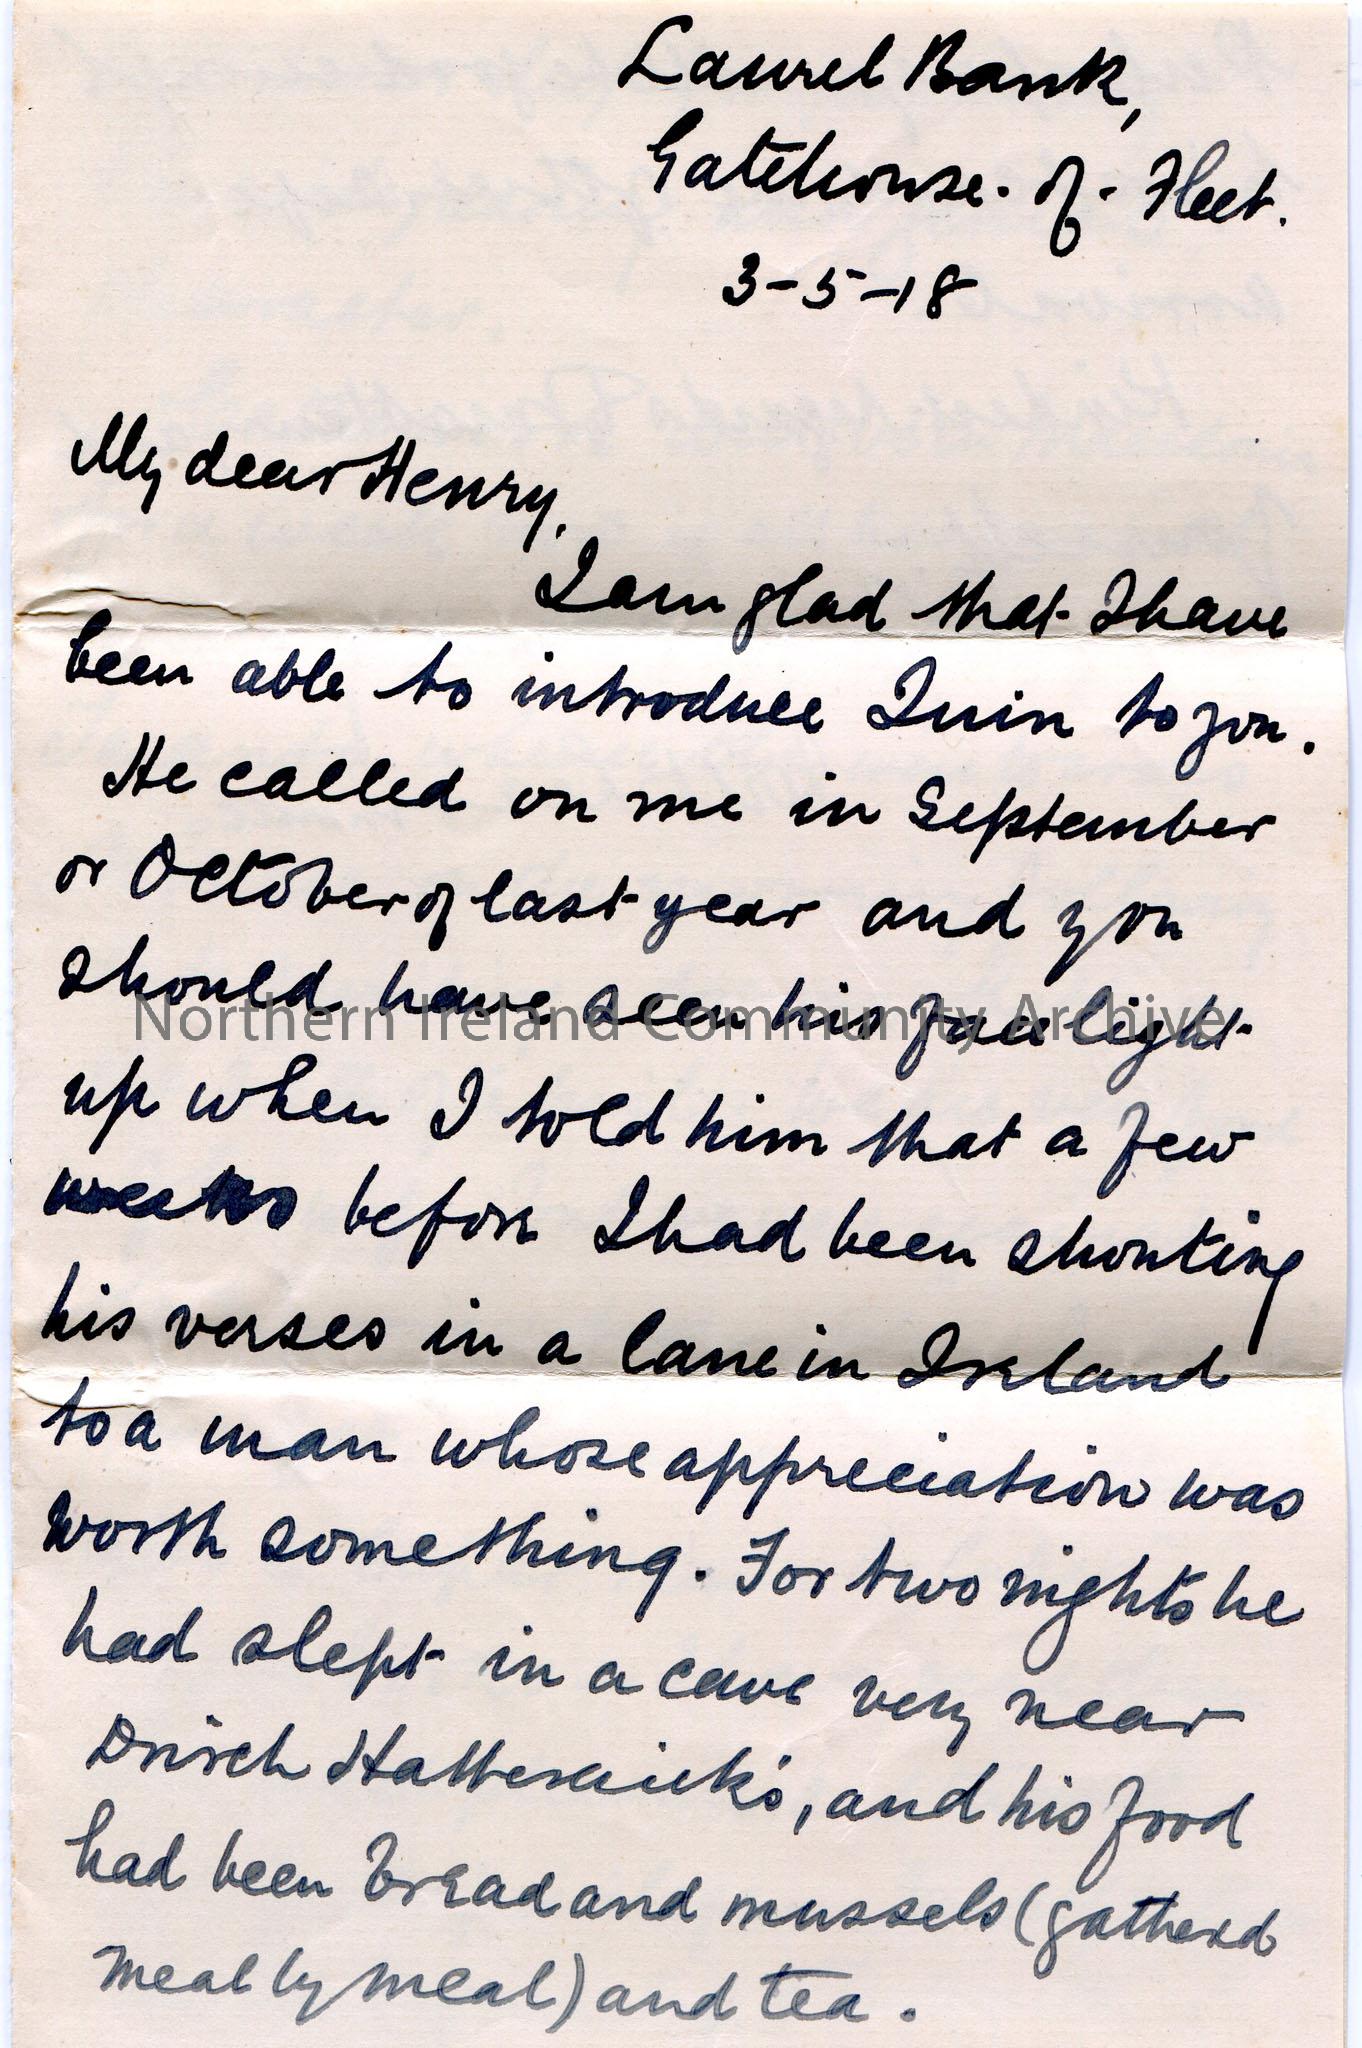 Laurel Bank,
Gatehouse-of-Fleet.
3-5-18
My dear Henry,
I am glad that I have
been able to introduce Quin to you.
He called on me in September
or October of last year and you
should have seen his face light
Northern Ireland Community Archive
up when I told him that a few
weeks before I had been shouting
his verses in a lane in Ireland
to a man whose appreciation was
worth something. For two nights he
had slept in a cave very near
Hatteraick's, and his food
had been bread and mussels (gathered
meal by meal) and tea.